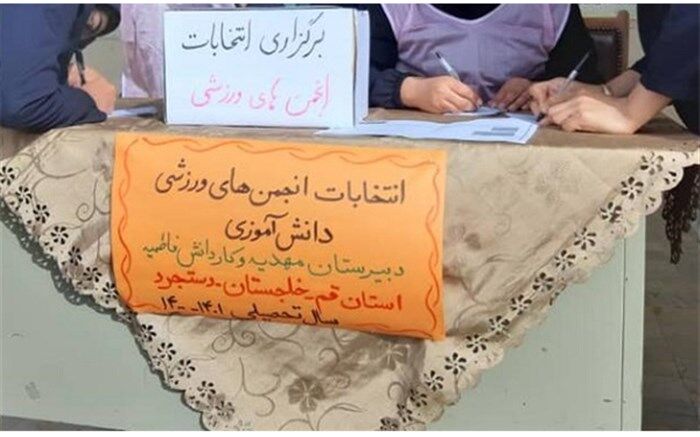 برگزاری انتخابات
انجمن های ورزشی
انتخابات انجمن های ورزشی
دانش آموزی
دبیرستان مهدیه و کاردانش فاطمیه
استان قم - خلجستان - دستجرد
سال تحصیلی ۱۴۰۱-۱۴۰۰